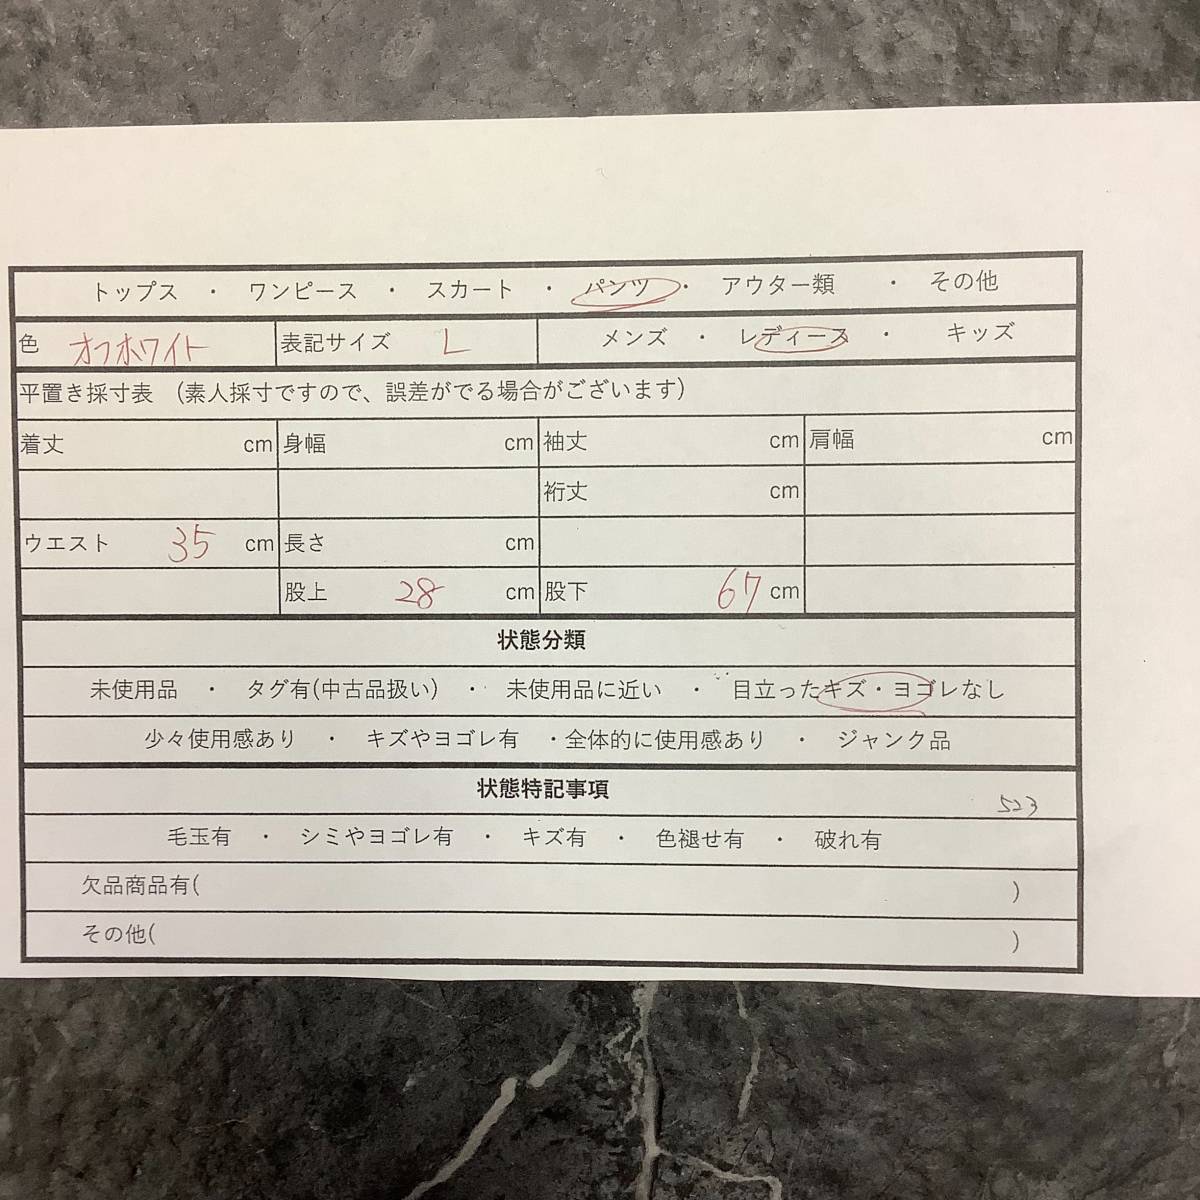 トップス ・ ワンピース ・ スカート ・ パンツ ・ アウター類 ・ その他
色 オフホワイト 表記サイズ L メンズ ・ レディース ・ キッズ
平置き採寸表 (素人採寸ですので、誤差がでる場合がございます)
着丈 cm 身幅 cm 袖丈 cm 肩幅 cm
裄丈 cm
ウエスト 35 cm 長さ cm
股上 28 cm 股下 67 cm
状態分類
未使用品 ・ タグ有(中古品扱い) ・ 未使用品に近い ・ 目立ったキズ・ヨゴレなし
少々使用感あり ・ キズやヨゴレ有 ・全体的に使用感あり ・ ジャンク品
状態特記事項
523
毛玉有 ・ シミやヨゴレ有 ・ キズ有 ・ 色褪せ有 ・ 破れ有
欠品商品有( )
その他( )